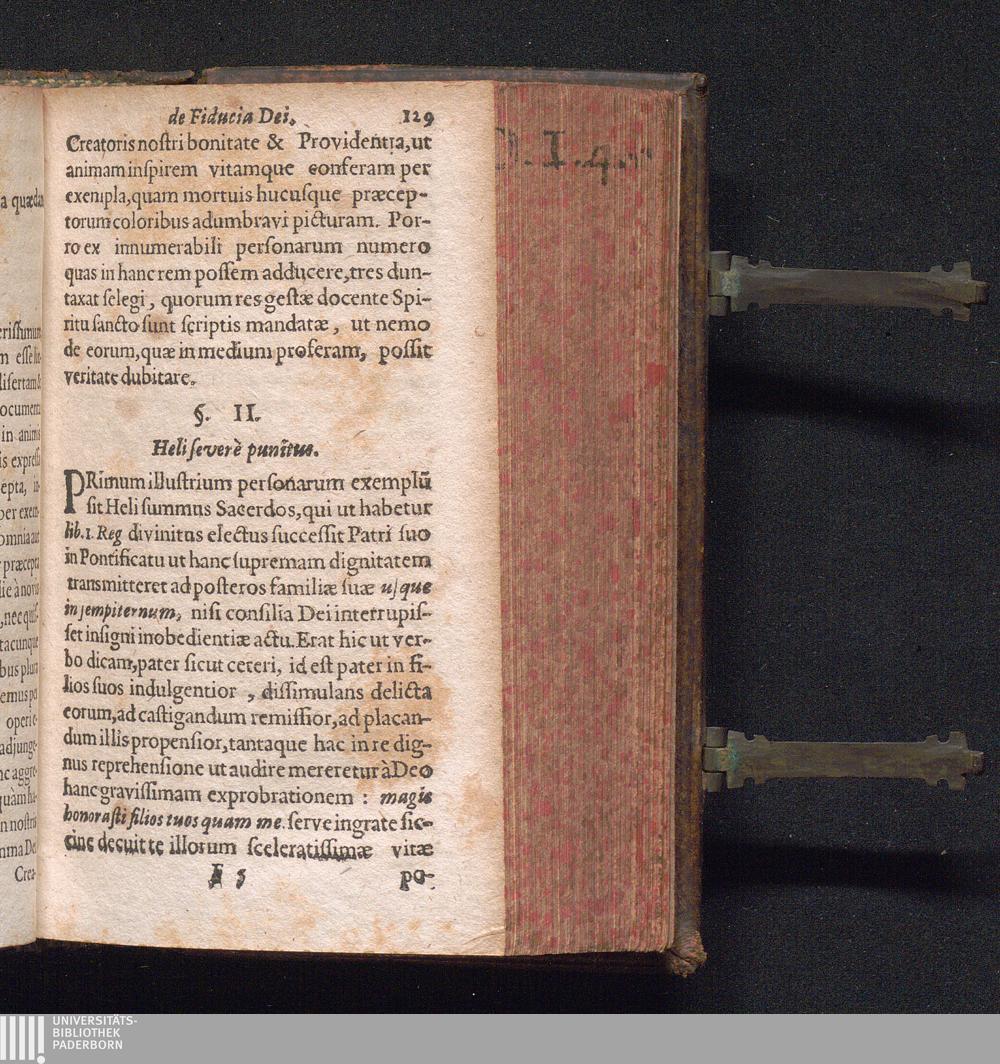 de Fiducia Dei. 129
Creatoris nostri bonitate & Providentia, ut
animam inspirem vitamque conferam per
exempla, quam mortuis hucusque præcep-
torum coloribus adumbravi picturam. Por-
ro ex innumerabili personarum numero
quas in hanc rem possem adducere, tres dun-
taxat selegi, quorum res gestæ docente Spi-
ritu sancto sunt scriptis mandatæ, ut nemo
de eorum, quæ in medium proferam, possit
veritate dubitare.
§. II.
Heli severè punitus.
PRimum illustrium personarum exemplū
sit Heli summus Sacerdos, qui ut habetur
lib. 1. Reg divinitus electus successit Patri suo
in Pontificatu ut hanc supremam dignitatem
transmitteret ad posteros familiæ suæ usque
in sempiternum, nisi consilia Dei interrupis-
set insigni inobedientiæ actu. Erat hic ut ver-
bo dicam, pater sicut ceteri, id est pater in fi-
lios suos indulgentior, dissimulans delicta
eorum, ad castigandum remissior, ad placan-
dum illis propensior, tantaque hac in re dig-
nus reprehensione ut audire mereretur à Deo
hanc gravissimam exprobrationem : magis
honorasti filios tuos quam me. serve ingrate sic-
cine decuit te illorum sceleratissimæ vitæ
F 5 po-
a quædam
ocument
in animis
epta, in-
per exem-
præcepta
, nec quis-
tacunque
bus plura
operi e-
adjunge-
quàm ha-
n nostri
Crea-
D. I. 4.
UNIVERSITÄTS-
BIBLIOTHEK
PADERBORN